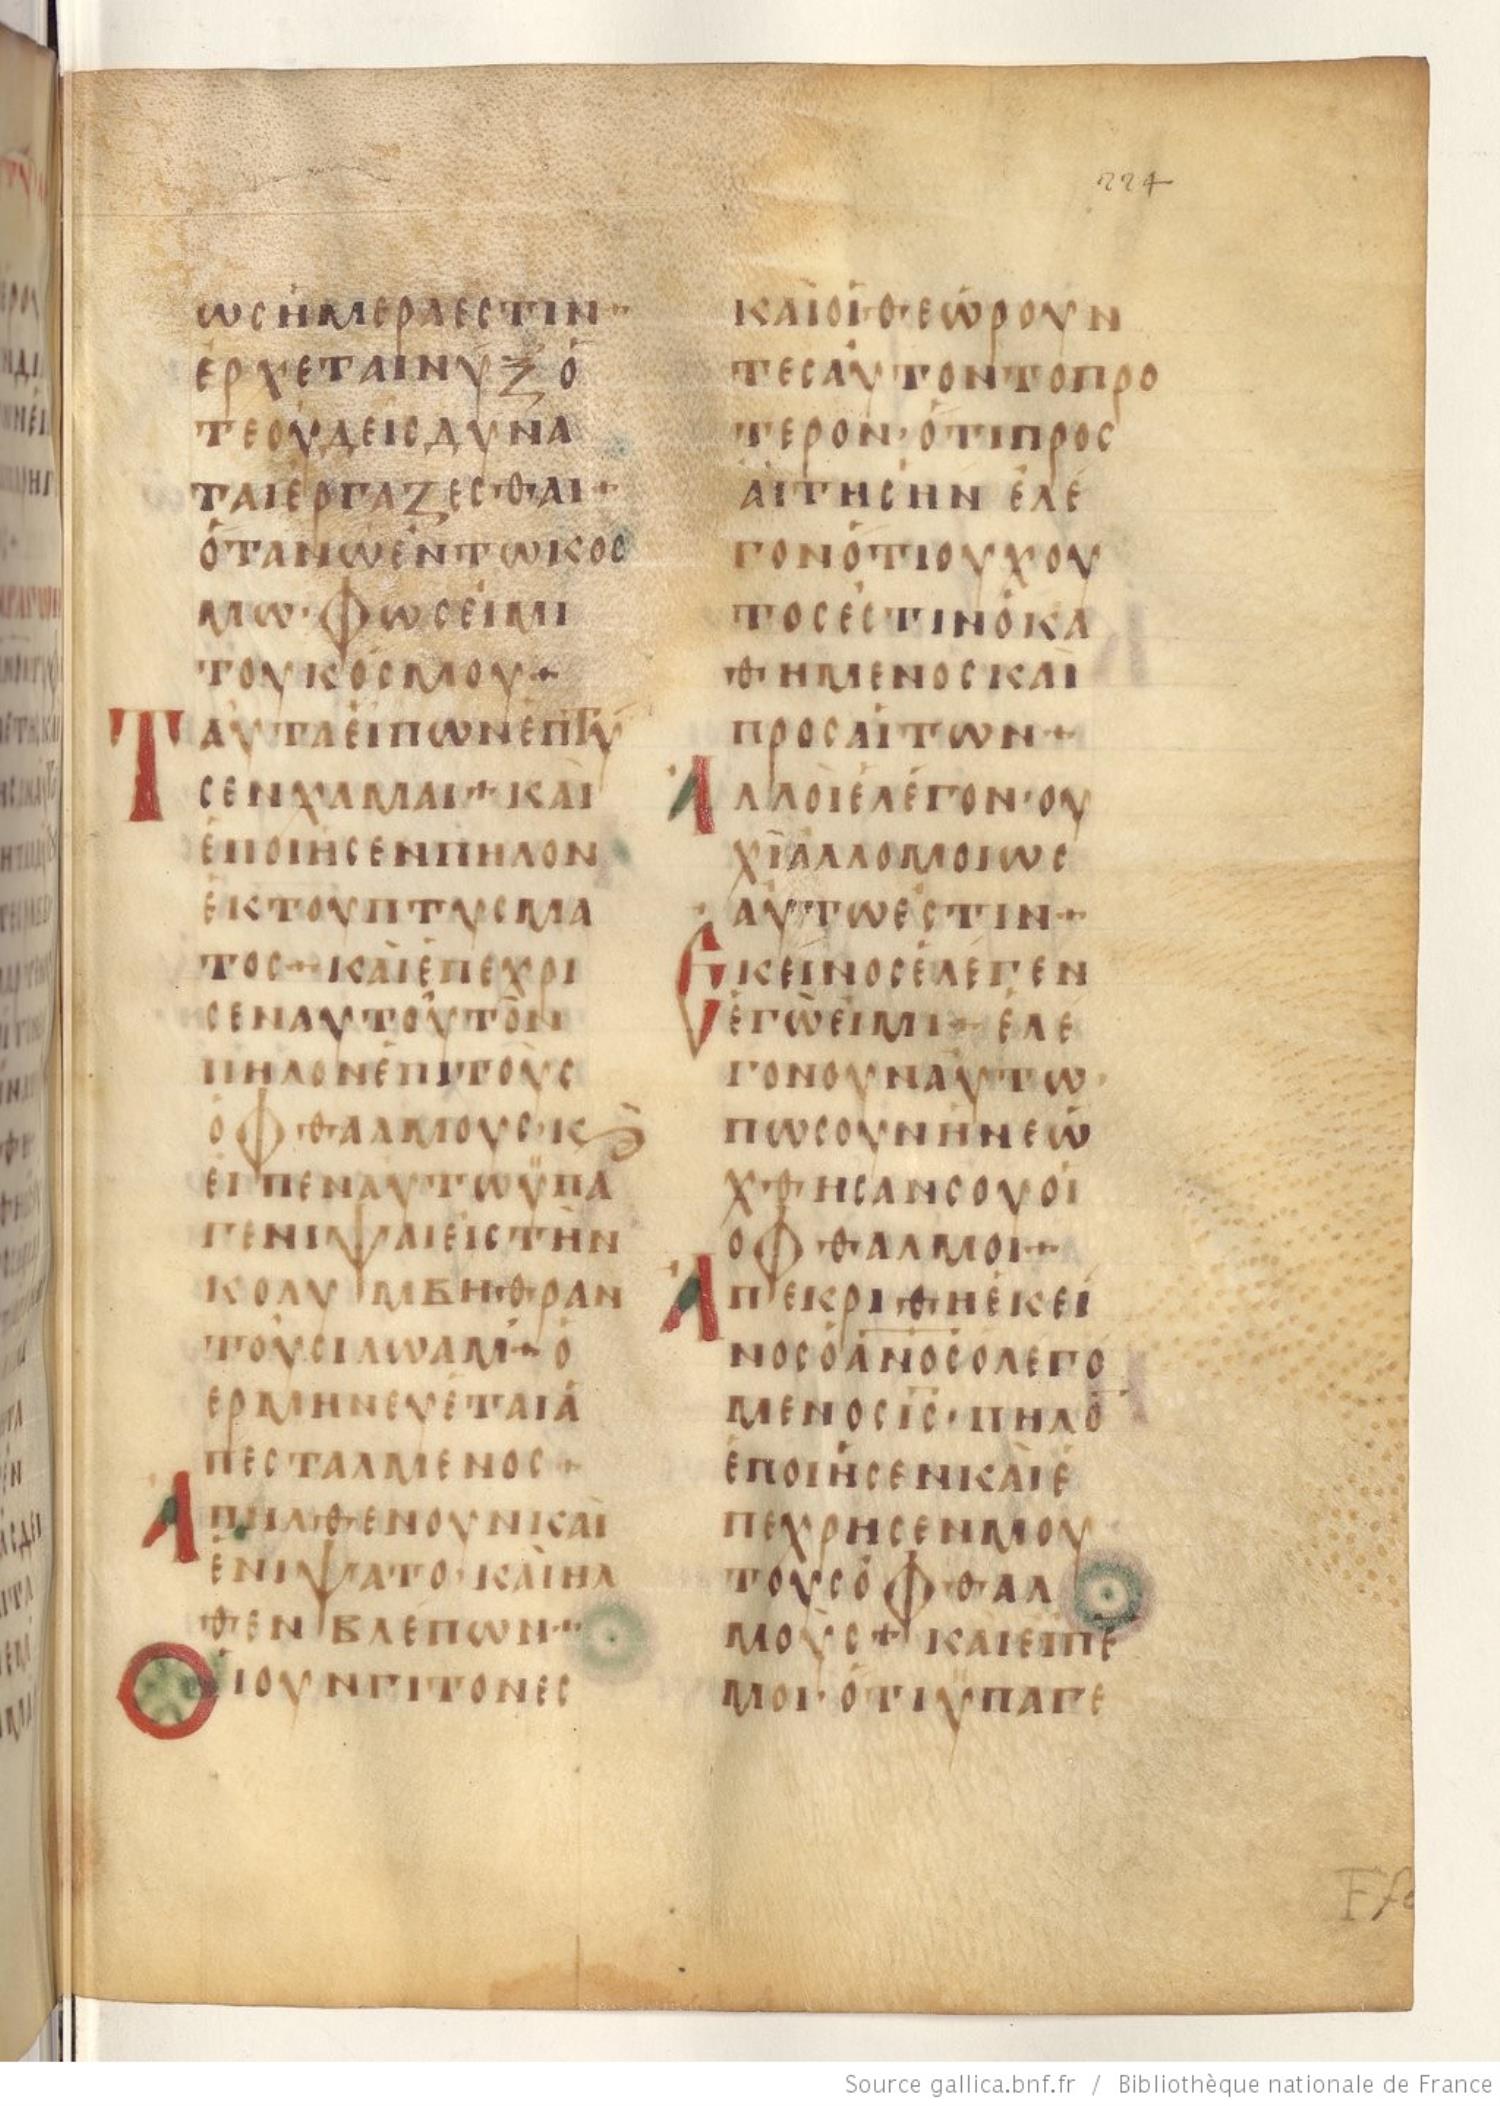 224
ωςημεραεςτιν
ἐρχεταινὺξὅ
τεουδειςδυνα
ταιἐργαζεςθαι+
ὅτανωἐντωκος
μω·φωςειμι
τουκοςμου+
Ταυταειπωνἐπτυ
ςενχαμαι+καὶ
ἐποιηςενπηλον
ἐκτουπτυςμα
τος+καὶἐπεχρι
ςεναυτοῦτὸν
πηλονἐπιτοὺς
ὀφθαλμους·κ
ειπεναυτωϋπα
γενιψαιεἰςτὴν
κολυμβηθραν
τοῦςιλωαμ+ὁ
ερμηνευεταιἀ
πεςταλμενος+
Απηλθενουνκαὶ
ἐνιψατο·καὶηλ
θενβλεπων
Οιουνγιτονες
καιοἱθεωρουν
τεςαυτοντοπρο
τερον·ὅτιπρος
αἰτηςηνἐλε
γονὅτιουχου
τοςἐςτινὁκα
θημενοςκαι
προςαιτων+
Αλλοιἐλεγον·ου
χὶαλλομοιως
αυτωἐςτιν+
Εκεινοςἐλεγεν
ἐγὼειμι+ἐλε
γονουναυτω·
πωςουνηνεώ
χθηςανςουοἱ
οφθαλμοι+
Απεκριθηἐκει
νοςὁα̅ν̅ο̅ςολεγο
μενοςι̅ς̅·πηλο̅
ἐποιηςενκαὶἐ
πεχρηςενμου
τουςὀφθαλ
μοὺς+καιειπε
μοι·ὅτιϋπαγε
Ffe
Source gallica.bnf.fr / Bibliothèque nationale de France